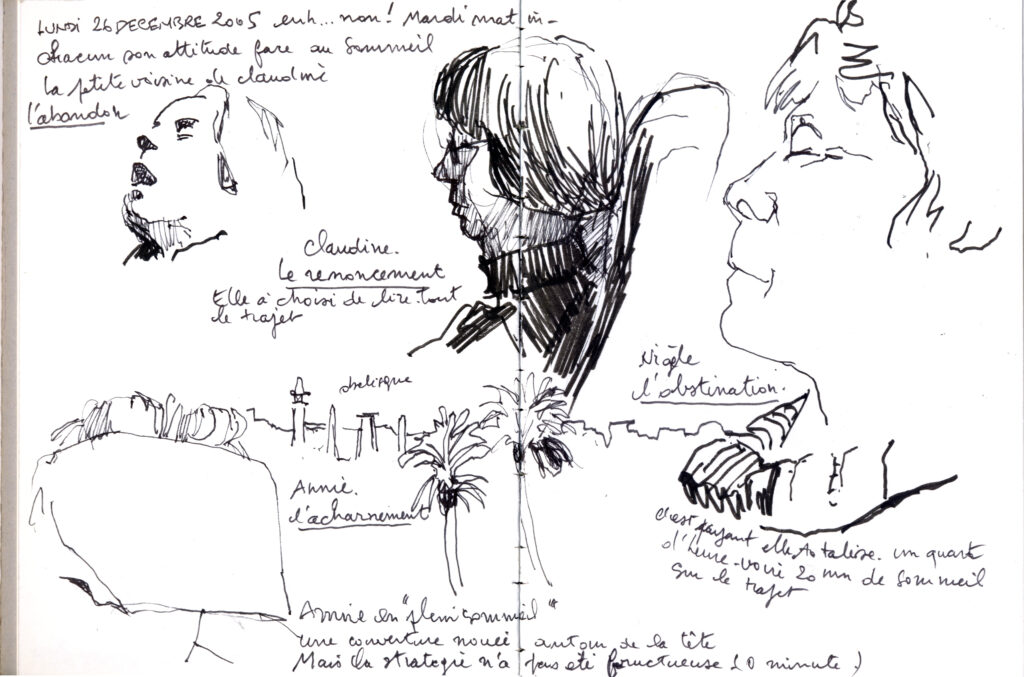 LUNDI 26 DECEMBRE 2005 euh... non! Mardi matin -
Chacun son attitude face au sommeil
La petite voisine de claudine
l'abandon
Claudine.
Le renoncement
Elle a choisi de lire tout
le trajet
obelisque
Nicole
l'obstination.
Annie.
l'acharnement
C'est payant elle totalise. un quart
d'heure - voire 20 mn de sommeil
sur le trajet
Annie en "plein sommeil"
une couverture nouée autour de la tête
Mais la strategie n'a pas été fructueuse (0 minute)